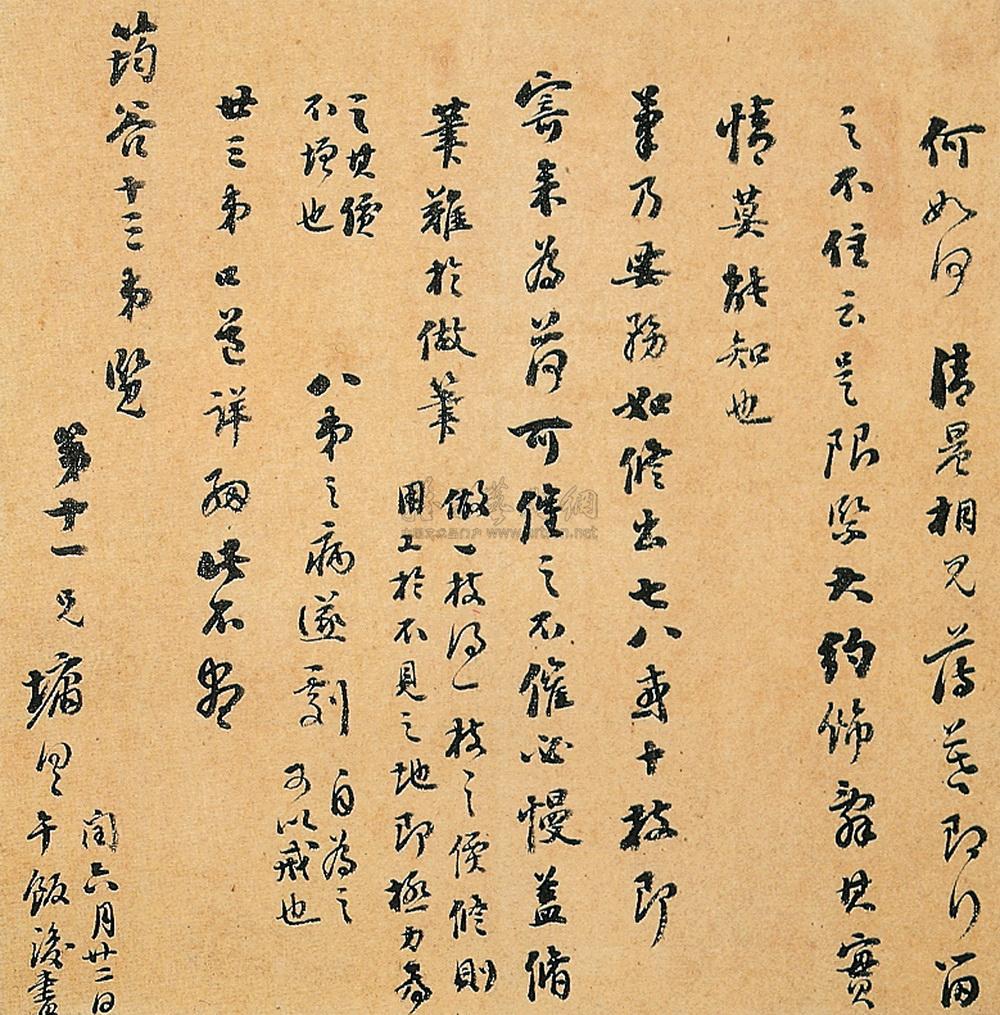 何如何 清晨相見 薄暮即行 留
之不住 云是限緊 大約飾辭 其實
情莫能知也
筆乃要務 如修出七八或十枝 即
寄來為荷 可催之 不催必慢 蓋修
筆難於做筆 做一枝得一枝之價 修則
用工於不見之地 即極力為
之 其價
不增也 八弟之病遂劇 自為之
可以戒也
廿三弟口道詳細 此不盡
筠谷十三弟覽
第十一兄墉
閏六月廿二日
午飯後書